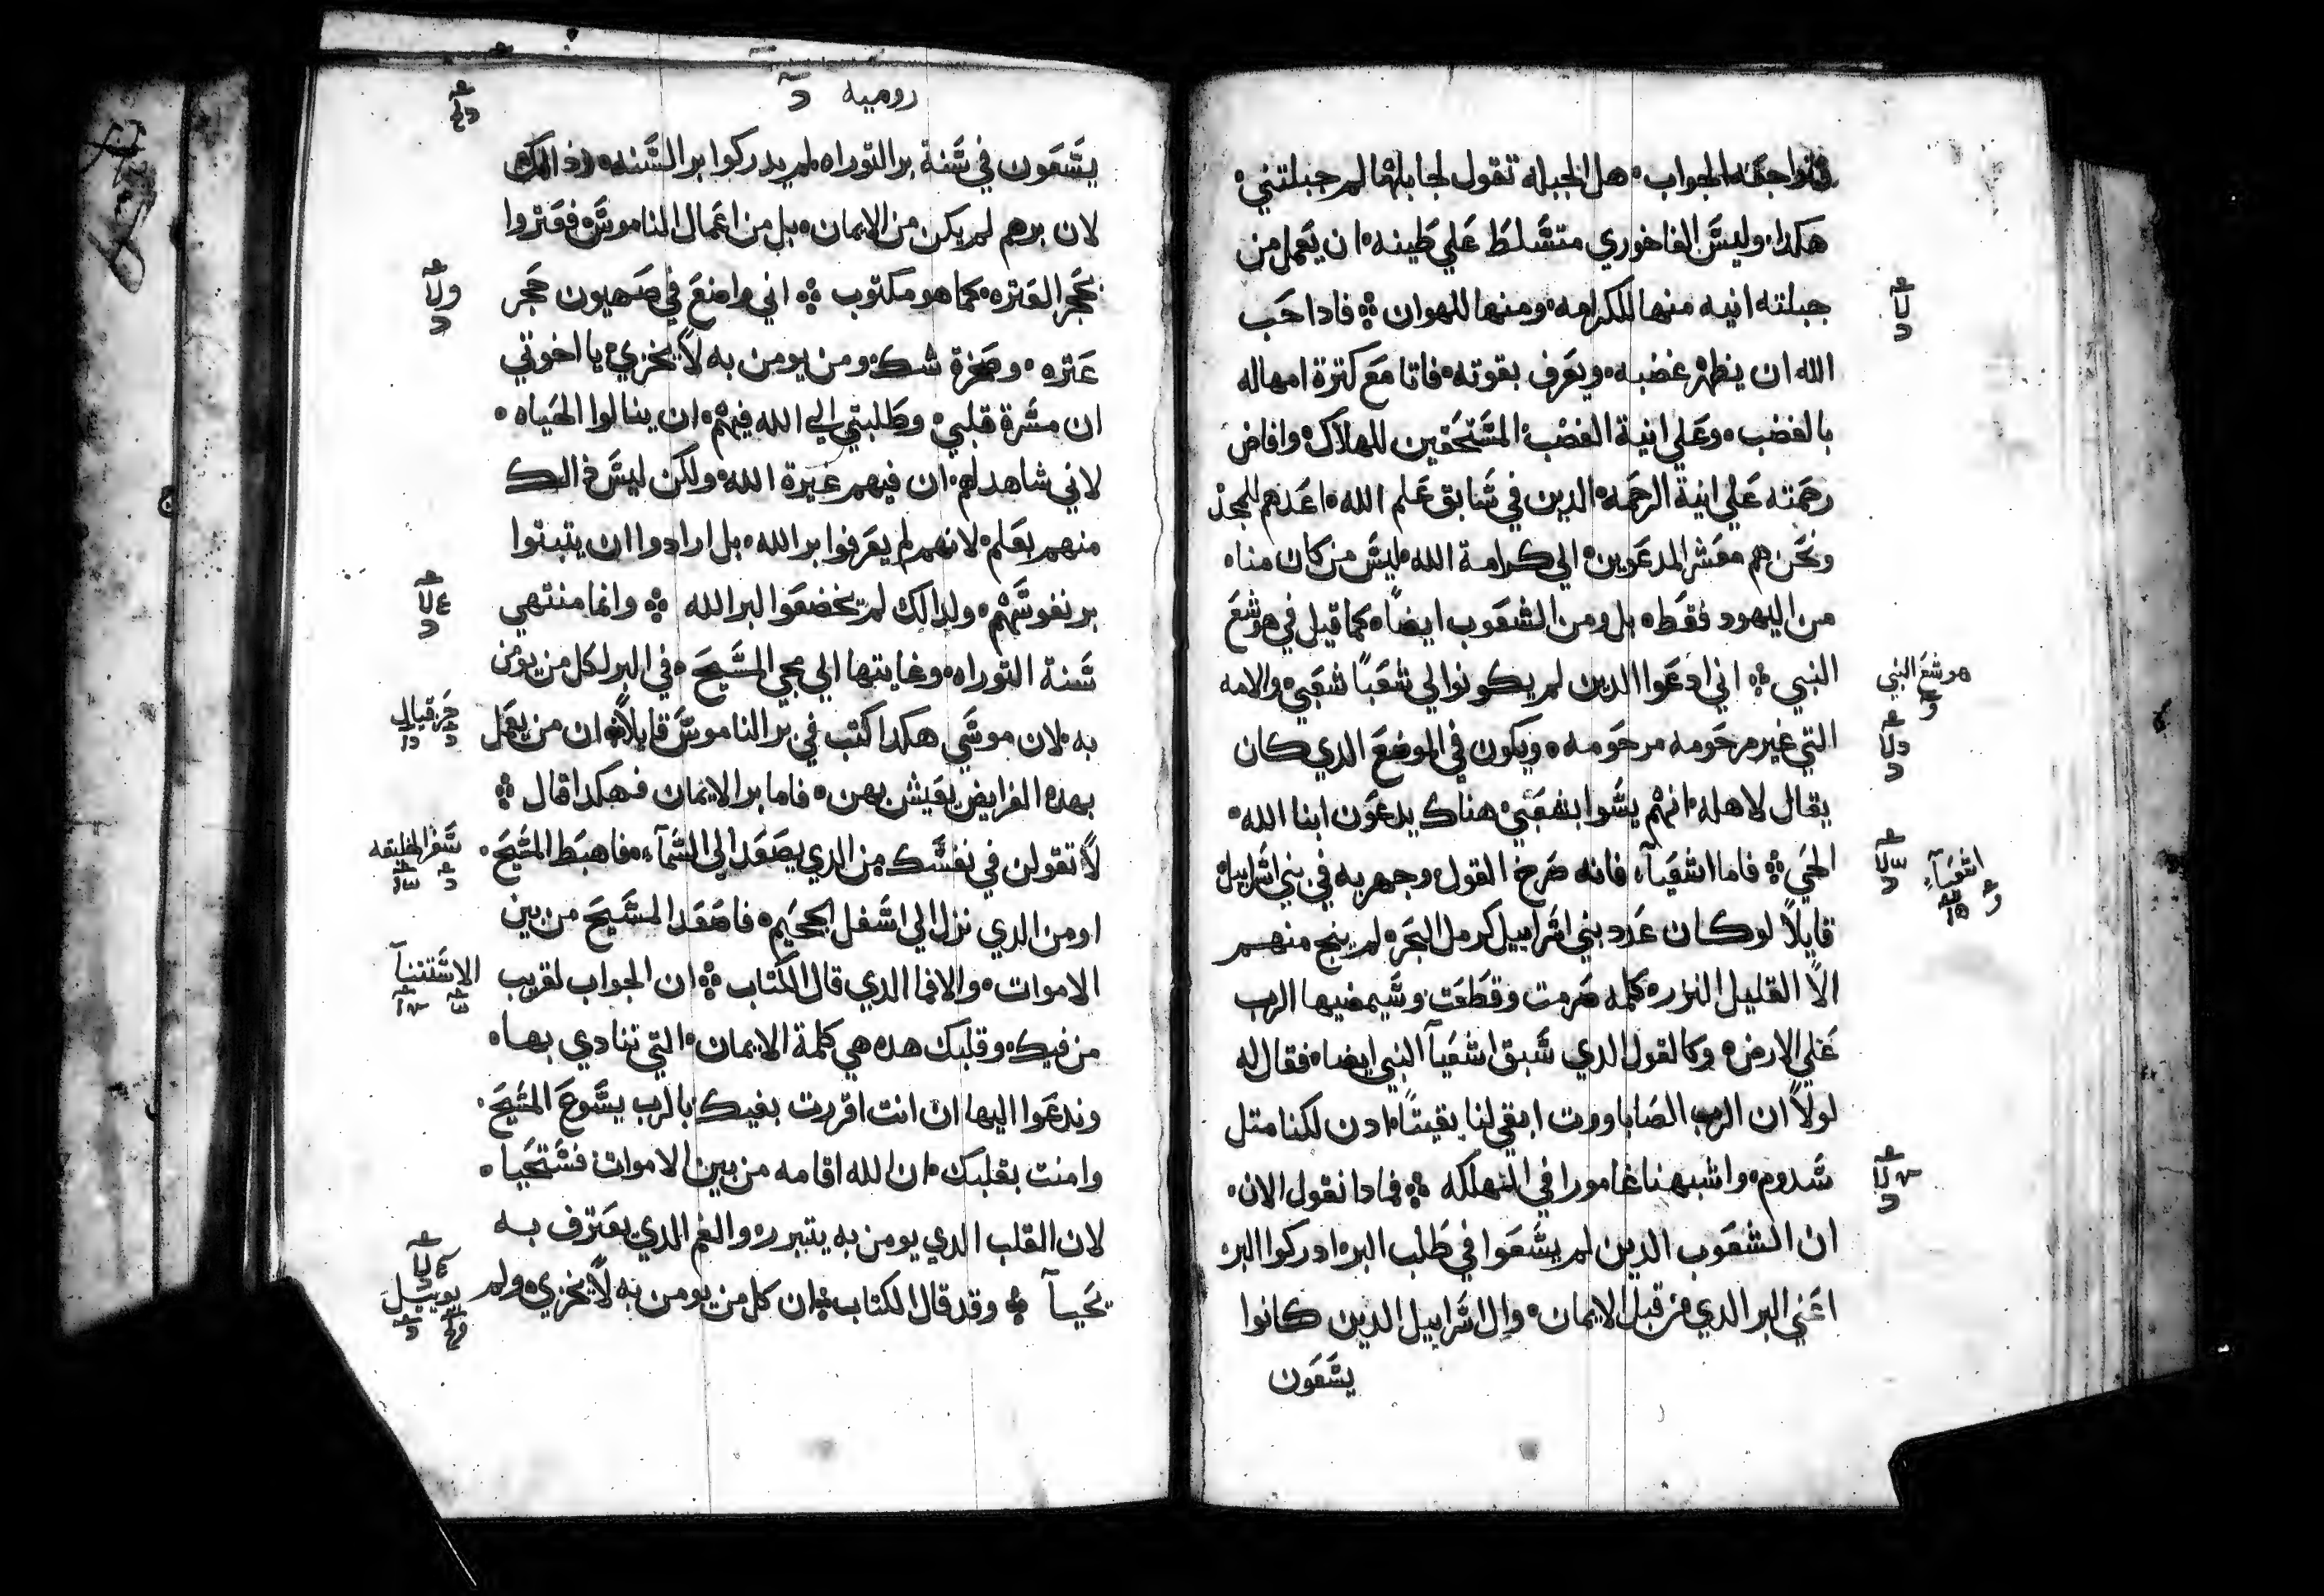 فتواجهه الجواب هل الجبله تقول لجابلها لم جبلتني
هكدا وليس الفاخوري متسلط علي طينه ان يعمل من
جبلته انيه منها للكرامه ومنها للهوان فادا احب
الله ان يظهر غضبه ويعرف بقوته فاتا مع كترة امهاله
بالغضب وعلي انية الغضب المستحقين للهلاك وافاض
رحمته علي انية الرحمه الدين في سابق علم الله اعدهم للمجد
ونحن هم معشر المدعوين الي كرامة الله ليس من كان منا
من اليهود فقط بل ومن الشعوب ايضاً كما قيل في هوشع
النبي اني ادعوا الدين لم يكونوا لي شعباً شعبي والامه
التي غير مرحومه مرحومه ويكون في الموضع الدي كان
يقال لاهله انهم يسوا بشعبي هناك يدعون ابنا الله
الحي فاما اشعيآء فانه صرخ القول وجهر به في بني اسراييل
قايلاً لو كان عدد بني اسراييل كرمل البحر لم ينج منهم
الاً القليل النزر كلمه صرمت وقطعت وسيمضيها الرب
علي الارض وكالقول الدي سبق اشعيآ النبي ايضا فقال له
لولاً ان الرب الصاباووت ابقي لنا بقيتاً ادن لكنا متل
سدوم واشبهنا غامورا في المهلكه فمادا نقول الان
ان الشعوب الدين لم يسعوا في طلب البر ادركوا البر
اعني البر الدي من قبل الايمان وال اسراييل الدين كانوا
يسعون
هوشع النبي
اشعيآء
روميه
يسعون في سنة بر التوراه لم يدركوا بر السنه ودالك
لان برهم لم يكن من الايمان بل من اعمال الناموس فعتروا
بحجر العتره كما هو مكتوب اني واضع في صهيون حجر
عتره وصخرة شك ومن يومن به لاً يخزي يا اخوتي
ان مسرة قلبي وطلبتي الي الله فيهم ان ينالوا الحياه
لاني شاهد لهم ان فيهم غيرة الله ولكن ليس دالك
منهم بعلم لانهم لم يعرفوا بر الله بل ارادوا ان يتبتوا
بر نفوسهم ولدالك لم يخضعوا لبر الله وانما منتهي
سنة التوراه وغايتها الي مجي المسيح في البر لكل من يومن
به لان موسي هكدا كتب في بر الناموس قايلاً ان من يعمل
بهده الفرايض يعيش بهن فاما بر الايمان فهكدا قال
لاً تقولن في نفسك من الدي يصعد الي السمآء فاهبط المسيح
او من الدي نزل الي اسفل الجحيم فاصعد المسيح من بين
الاموات والا فما الدي قال الكتاب ان الجواب لقريب
من فيك وقلبك هده هي كلمة الايمان التي ننادي بها
وندعوا اليها ان انت اقررت بفيك بالرب يسوع المسيح
وامنت بقلبك ان الله اقامه من بين الاموات فستحيا
لان القلب الدي يومن به يتبرر والفم الدي يعترف به
يحيآ وقد قال الكتاب ان كل من يومن به لاً يخزي ولم
حزقيال
سفر الخليقه
الاستتنآ
يوييل